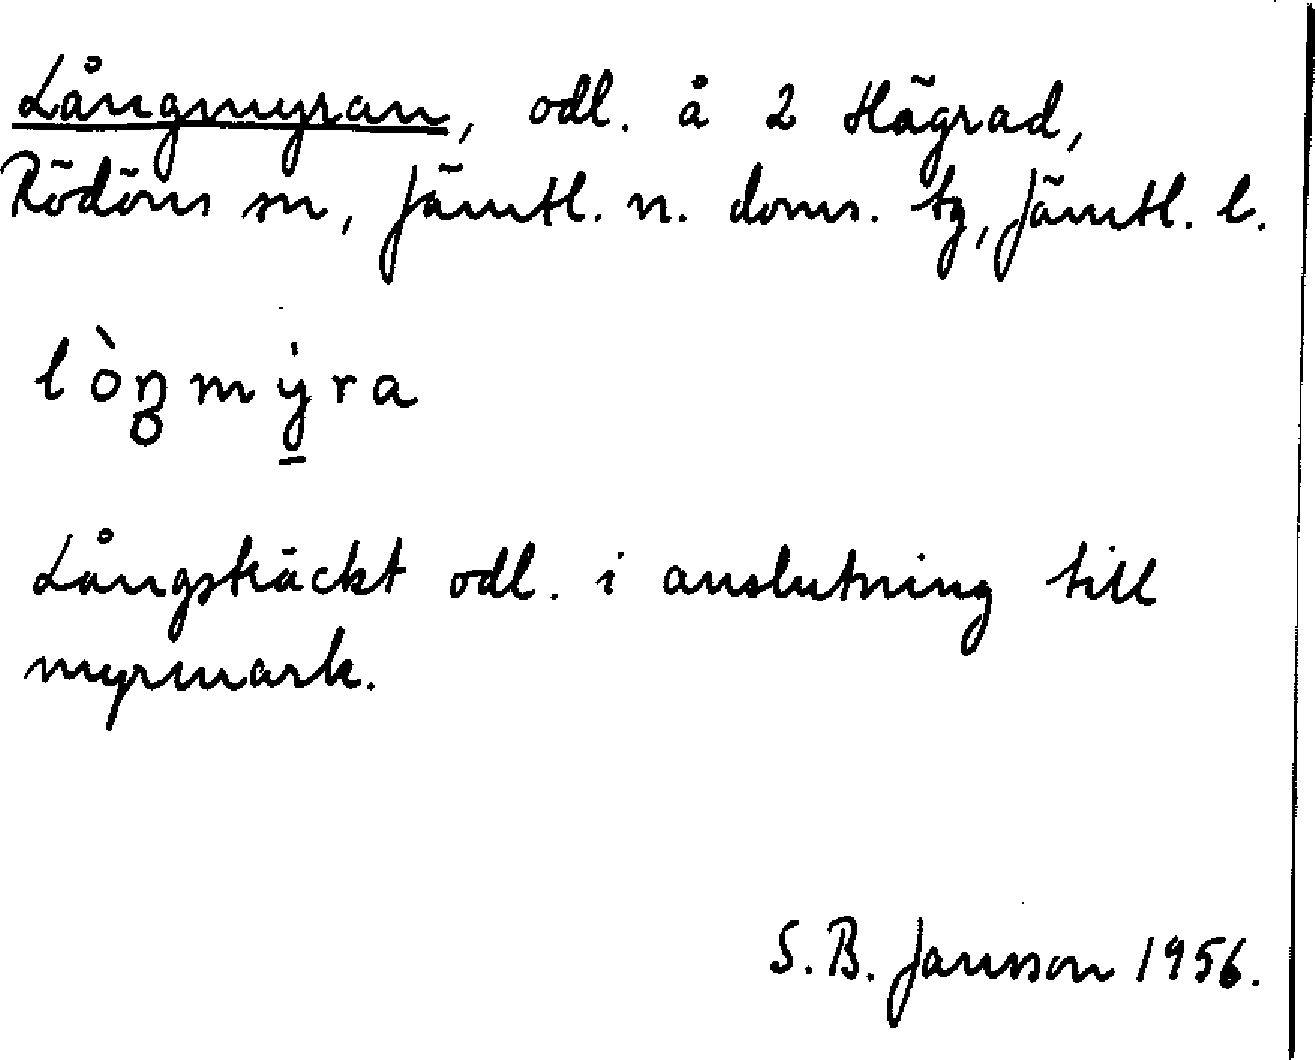 Långmyran, odl. å 2 Hägrad,
Rödöns sn, Jämtl. n. doms. tg, Jämtl. l.
lòŋmẏ̠ra
Långsträckt odl. i anslutning till
myrmark.
S. B. Jansson 1956.